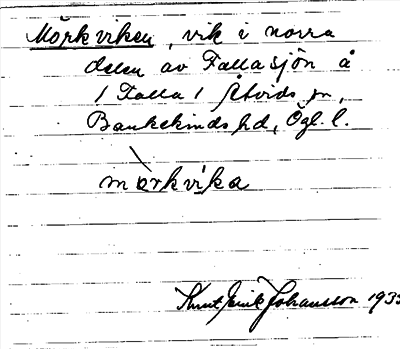 Mörkviken, vik i norra
delen av Fallasjön å
/ Falla / Åtvids sn,
Bankekinds hd, Ögl. l.
mörkvika
Knut Erik Johansson 193